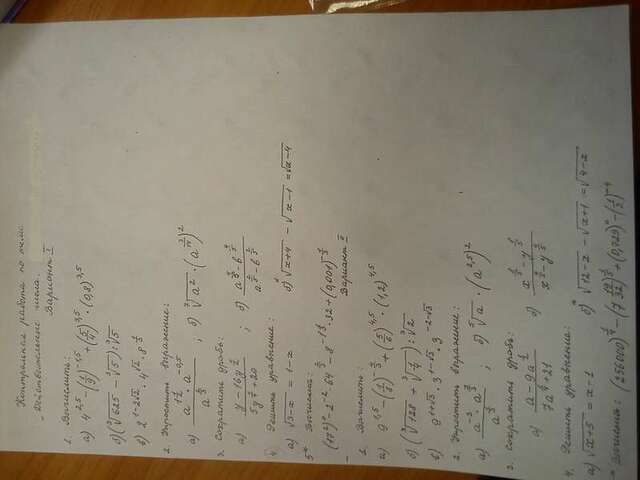 Контрольная работа по теме
„Действительные числа.
Вариант I
1. Вычислить:
а) 4^2,5 − (1/9)^−1,5 + (5/4)^3,5 · (0,8)^3,5
б) (∛625 − ∛5) : ∛5
в) 2^1−2√2 · 4^√2 · 8^1/3
2. Упростить выражение:
а) a^ · a^−0,5 / a^2/3 ; б) √a² · (a^)²
3. Сократить дробь:
а) y − 16y^1/2 / 5y^1/4 + 20 ; б) a^4/5 − b^4/5 / a^2/5 − b^2/5
4. Решить уравнение:
а) √3−x = 1−x б)* √x+4 − √x−1 = √x−4
5* Вычислить:
(17²)^0 − 2^−2 · 64^2/3 − 8^−1 1/3 · 32 + (0,001)^−1/3
Вариант II
1. Вычислить:
а) 9^1,5 − (1/8)^−4/3 + (5/6)^4,5 · (1,2)^4,5
б) (∛128 + ∛1/4) : ∛2
в) 9^1+√3 · 3^1−√3 · 3^−2−√3
2. Упростить выражение:
а) a^−3 · a^ / a^ ; б) √a · (a^2,5)²
3. Сократить дробь:
а) a − 9a^1/2 / 7a^1/4 + 21 б) x − y / x − y
4. Решить уравнение:
а) √x+5 = x−1 б)* √12−x − √x+1 = √4−x
* Вычислить: (256000)^ − (7 19/32)^ + (0,729)^0 − (1/2)^−4